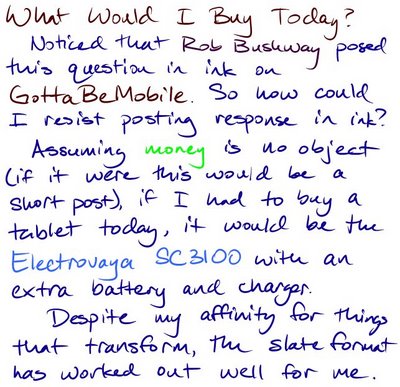 What Would I Buy Today?
Noticed that Rob Bushway posed
this question in ink on
GottaBeMobile. So how could
I resist posting response in ink?
Assuming money is no object
(if it were this would be a
short post), if I had to buy a
tablet today, it would be the
Electrovaya SC3100 with an
extra battery and charger.
Despite my affinity for things
that transform, the slate format
has worked out well for me.